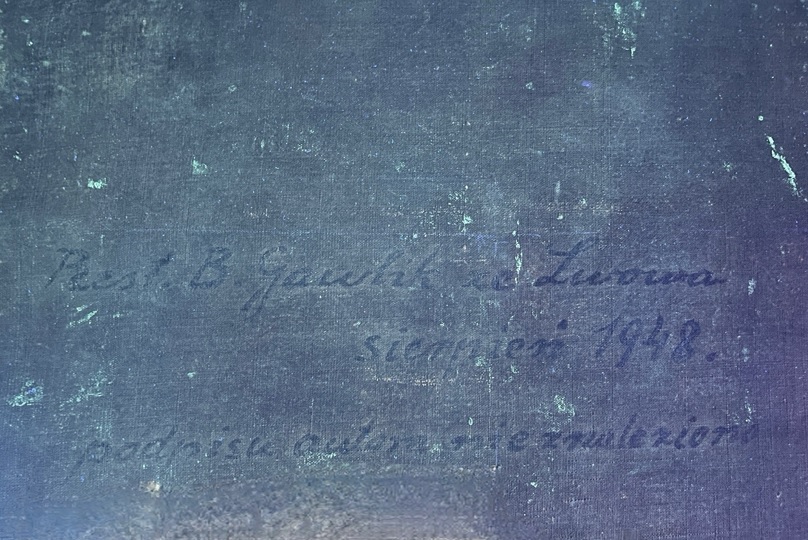 Rest. B. Gawlik ze Lwowa
sierpień 1948.
podpisu autora nie znaleziono